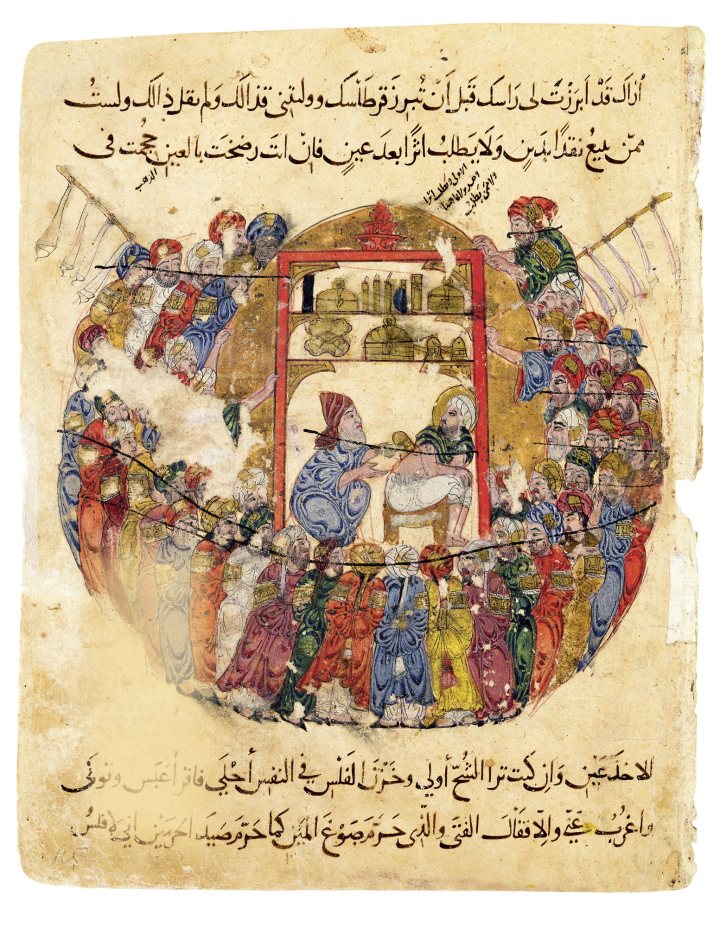 أراك قَدْ ابَرزْتَ لى رَاسَك قَبل اَنْ تُبرِزَ قرطَاسَك وولَيتَنى قذالَك وَلم تقل ذا لَك ولَستُ
ممنّ يبيعُ نقدًا بدَينٍ وَلَا يَطلبُ اثرًا بعدَ عينٍ فانْ انتَ رضَختَ بالعين حجمتُ فى
الذهب
الاخدَعَين وَان كنتَ ترا الشُحّ أولى وخَزنَ الفَلْس فى النفس أحْلَى فاقرأ عَبَس وتولَّى
واغرُب عَنّي والا فقَالَ الفتَى والّذى حَرّمَ صَوْغَ المَيْن كما حَرّمَ صَيدَ الحرمَين اني لافلسُ